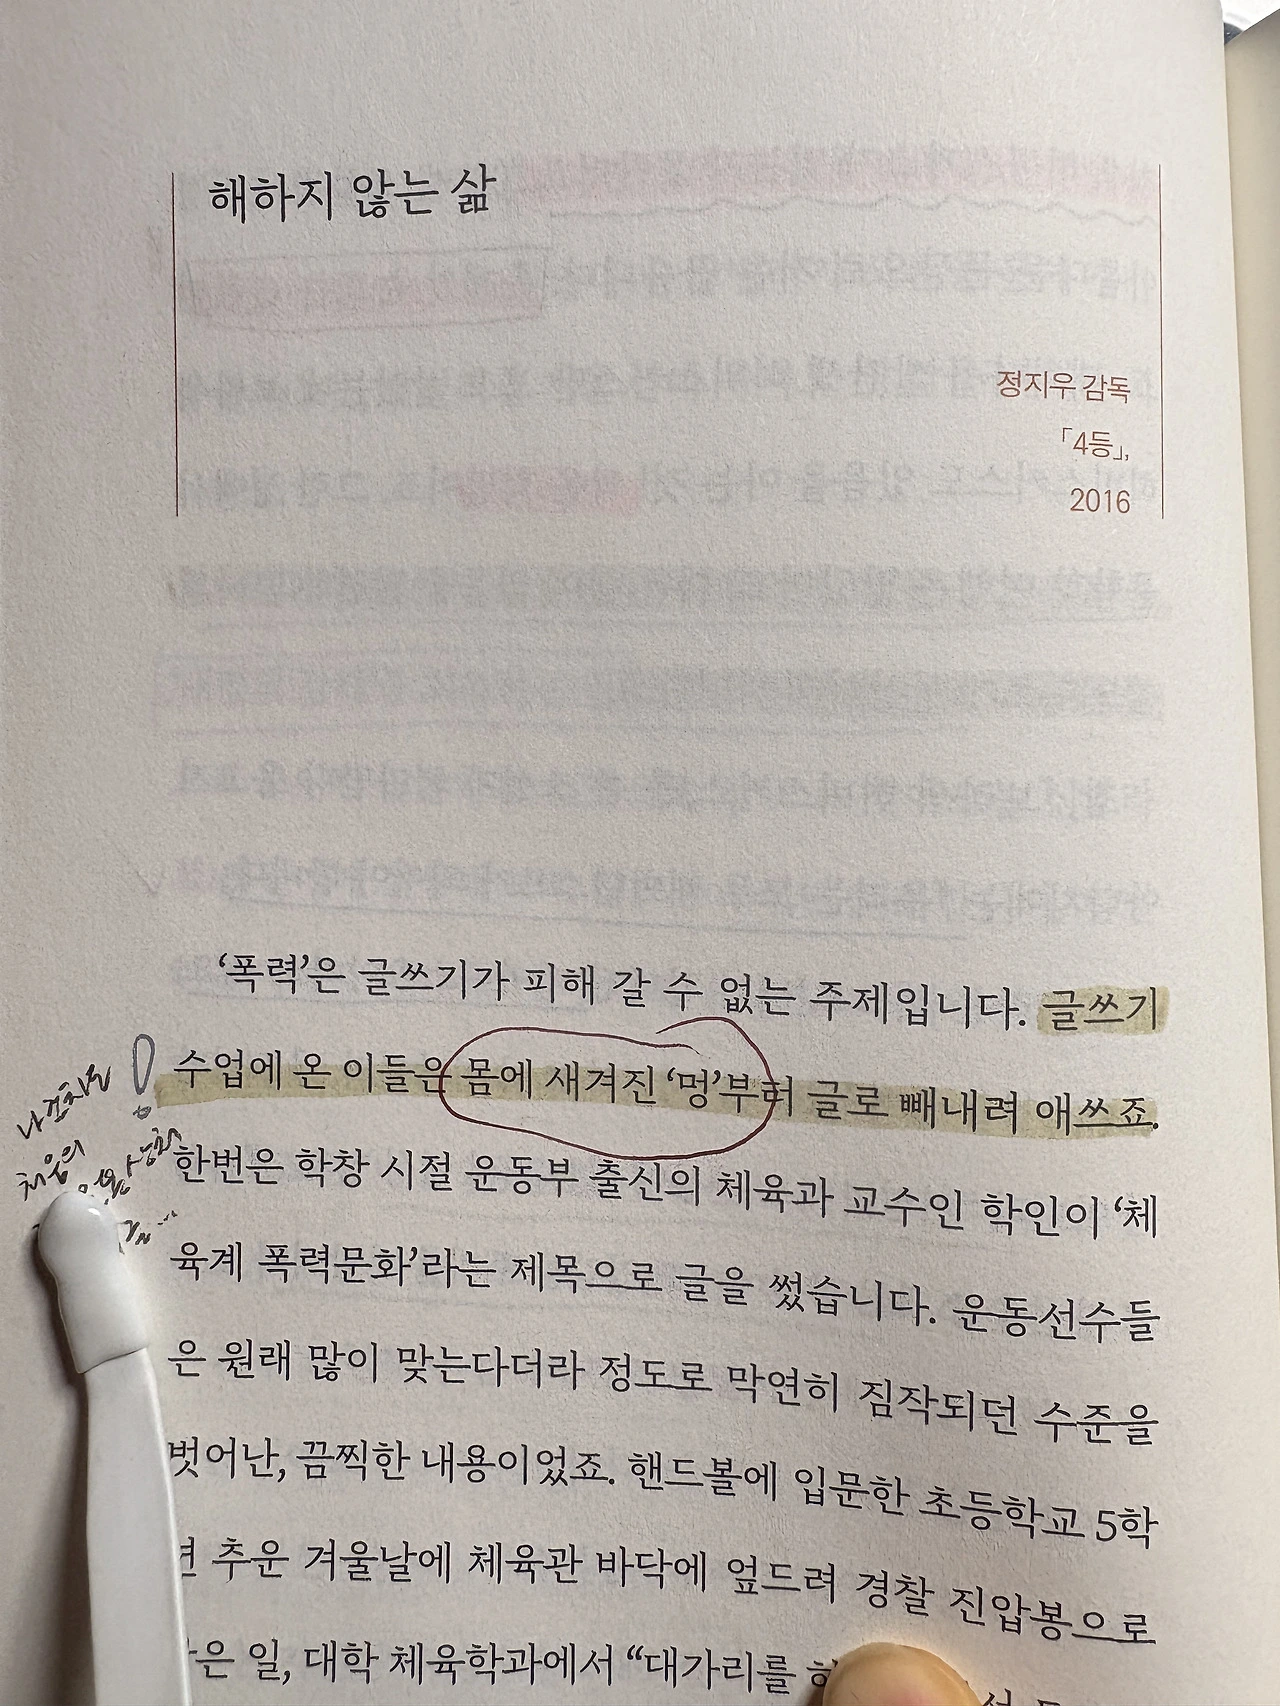 해하지 않는 삶
정지우 감독
「4등」,
2016
‘폭력’은 글쓰기가 피해 갈 수 없는 주제입니다. 글쓰기
수업에 온 이들은 몸에 새겨진 ‘멍’부터 글로 빼내려 애쓰죠.
한번은 학창 시절 운동부 출신의 체육과 교수인 학인이 ‘체
육계 폭력문화’라는 제목으로 글을 썼습니다. 운동선수들
은 원래 많이 맞는다더라 정도로 막연히 짐작되던 수준을
벗어난, 끔찍한 내용이었죠. 핸드볼에 입문한 초등학교 5학
년 추운 겨울날에 체육관 바닥에 엎드려 경찰 진압봉으로
은 일, 대학 체육학과에서 “대가리를